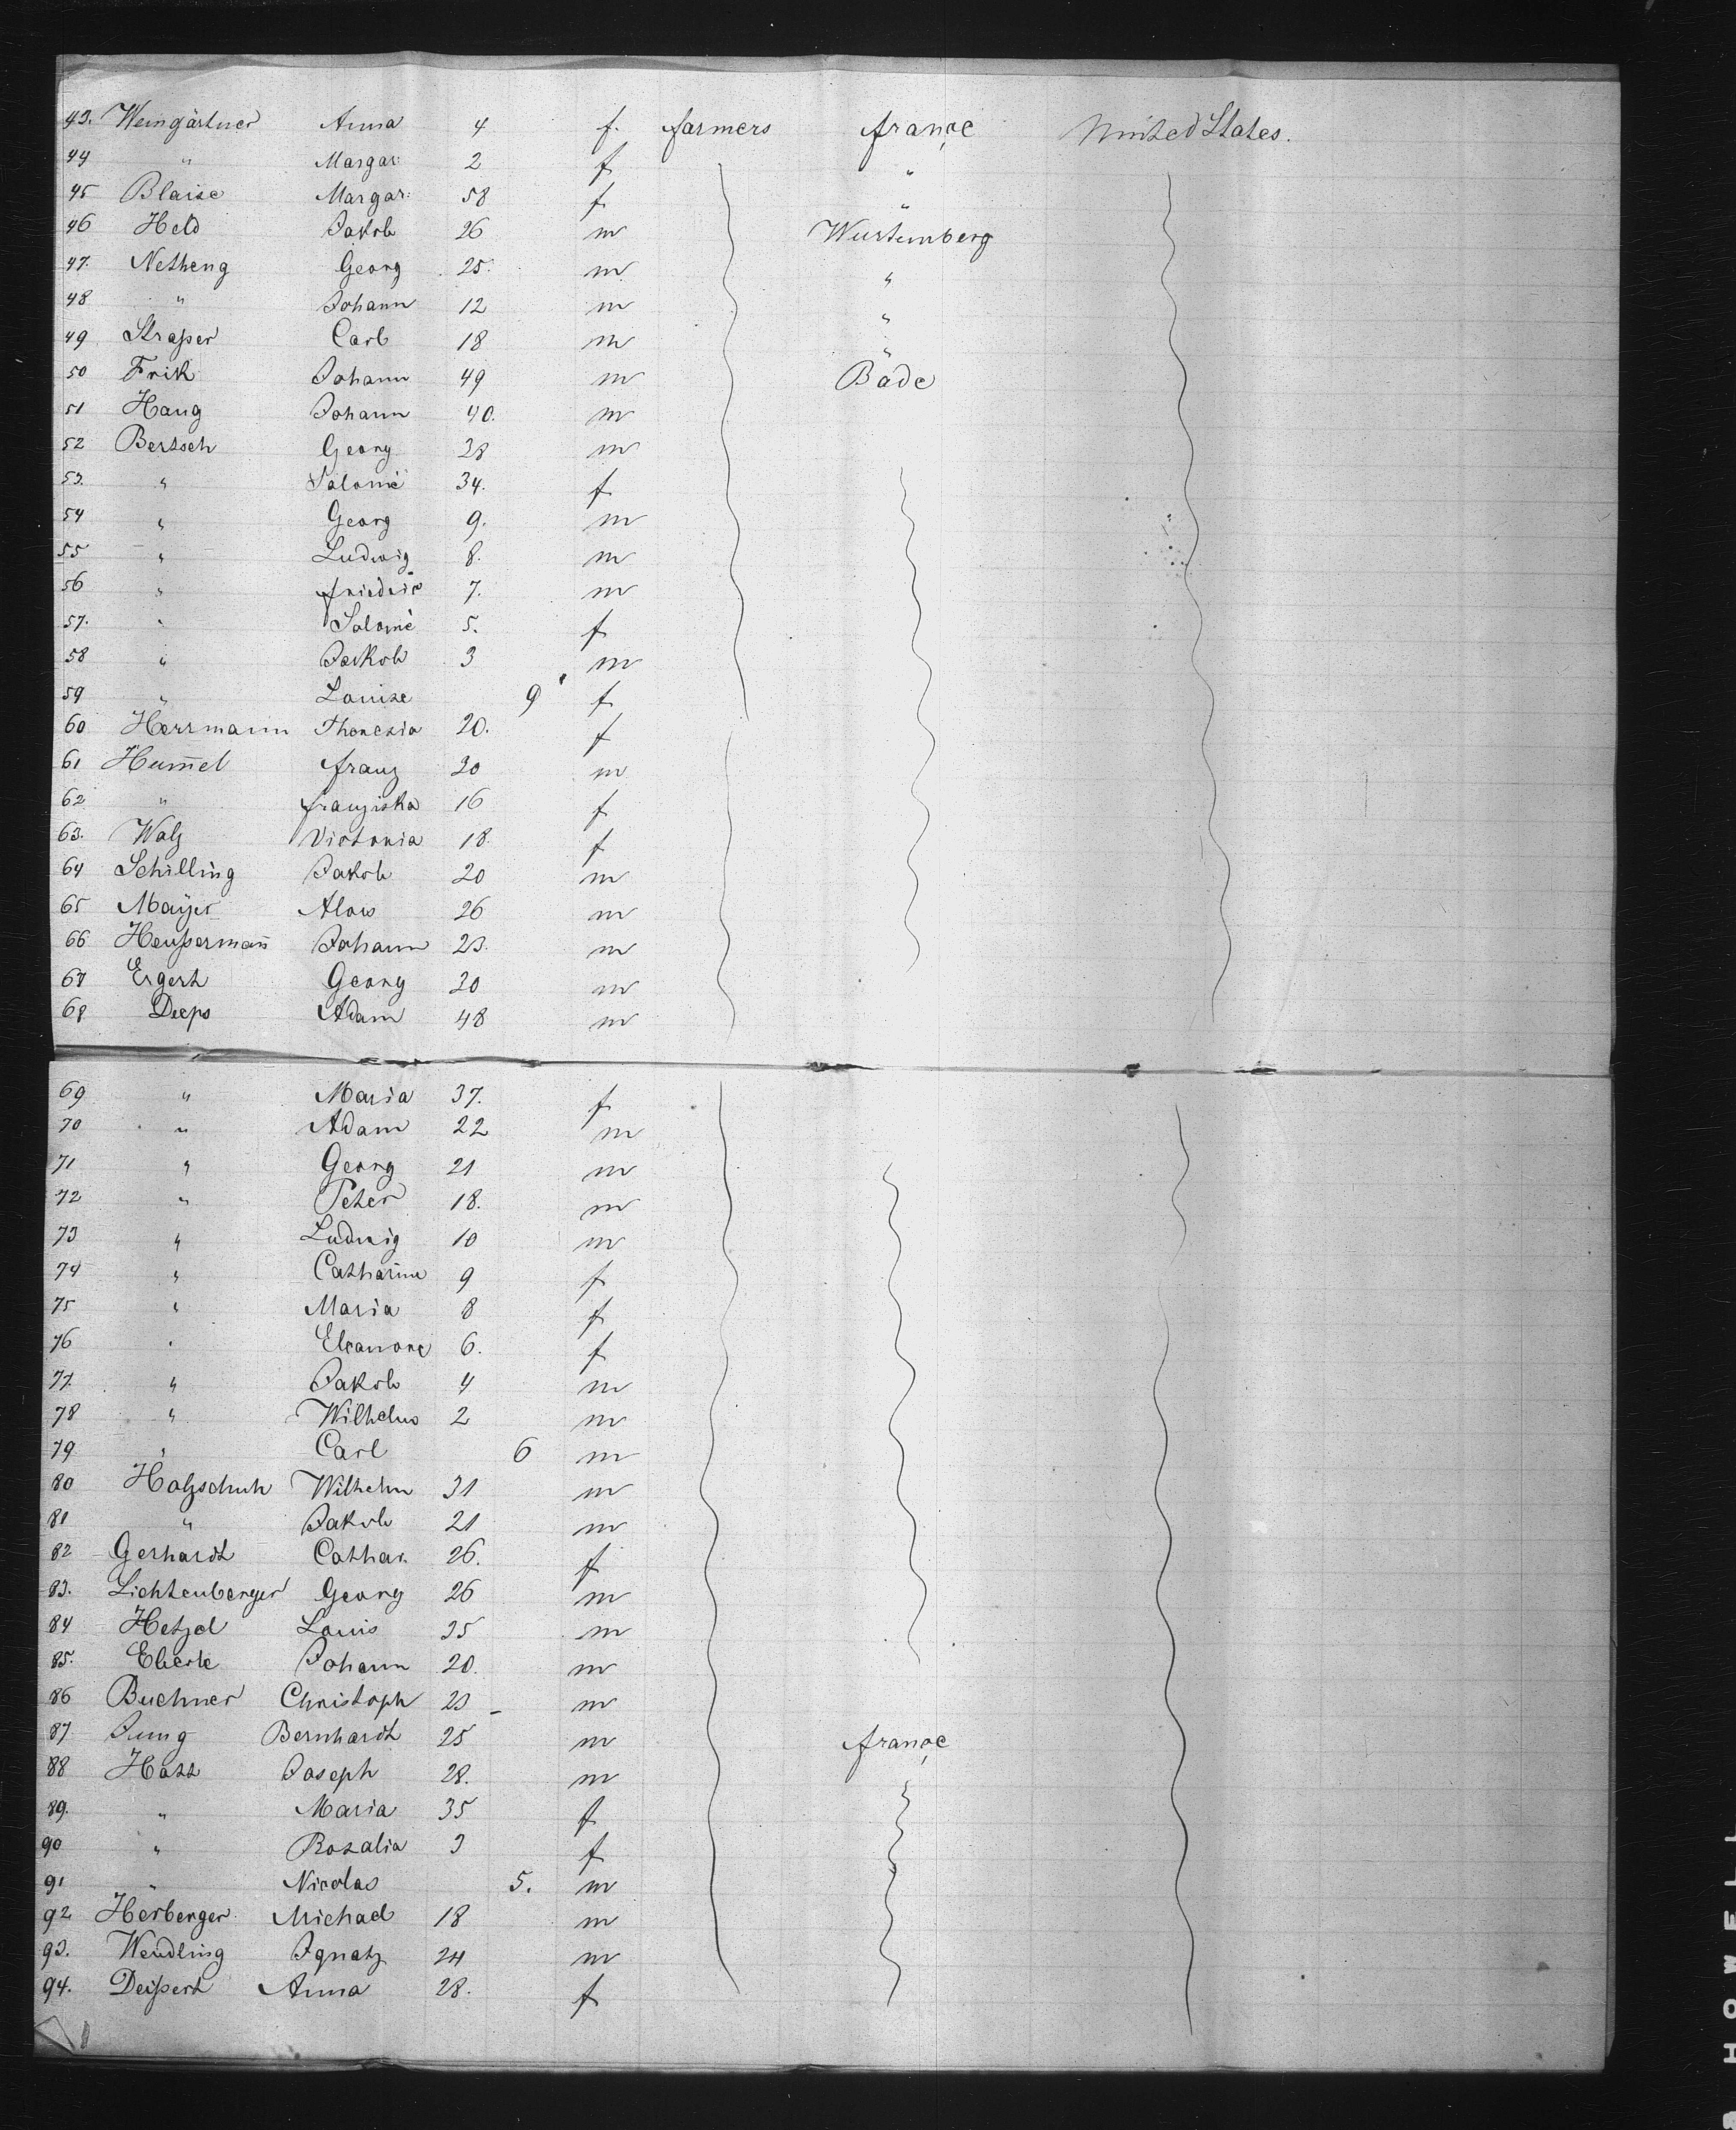 43. Weingärtner Anna 4 f. farmers françe United States.
44 " Margar: 2 f "
45 Blaise Margar: 58 f "
46 Held Jakob 26 m Wurtemberg
47. Netheng Georg 25. m "
48 " Johann 12 m "
49 Straßer Carl 18 m "
50 Frik Johann 49 m Bade
51 Haug Johann 40. m
52 Bertsch Georg 38 m
53. " Salomé 34. f
54 " Georg 9. m
55 " Ludwig 8. m
56 " friedric 7. m
57. " Salomé 5. f
58 " Jakob 3 m
59 " Louise 9 f
60 Herrmann Theresia 20. f
61 Hum̄el franz 30 m
62 " franziska 16 f
63. Walz Victoria 18. f
64 Schilling Jakob 20 m
65 Mayer Alois 26 m
66 Heußerman̄ Johann 23. m
67 Ergert Georg 30 m
68 Deeps Adam 48 m
69 " Maria 37. f
70 " Adam 22 m
71 " Georg 21 m
72 " Peter 18. m
73 " Ludwig 10 m
74 " Catharine 9 f
75 " Maria 8 f
76 " Eleanore 6. f
77. " Jakob 4 m
78 " Wilhelm 2 m
79. " Carl 6 m
80 Holzschuh Wilhelm 31 m
81 " Jakob 21 m
82 Gerhardt Cathar. 26. f
83. Lichtenberger Georg 26 m
84 Hetzel Louis 35 m
85. Eberle Johann 20. m
86 Buchner Christoph 23 - m
87. Jung Bernhardt 25 m françe
88 Hatt Joseph 28. m
89. " Maria 35 f
90 " Rosalia 3 f
91 " Nicolas 5. m
92 Herberger Michael 18 m
93. Wendling Ignatz 24 m
94. Deißert Anna 28. f
HOWELL